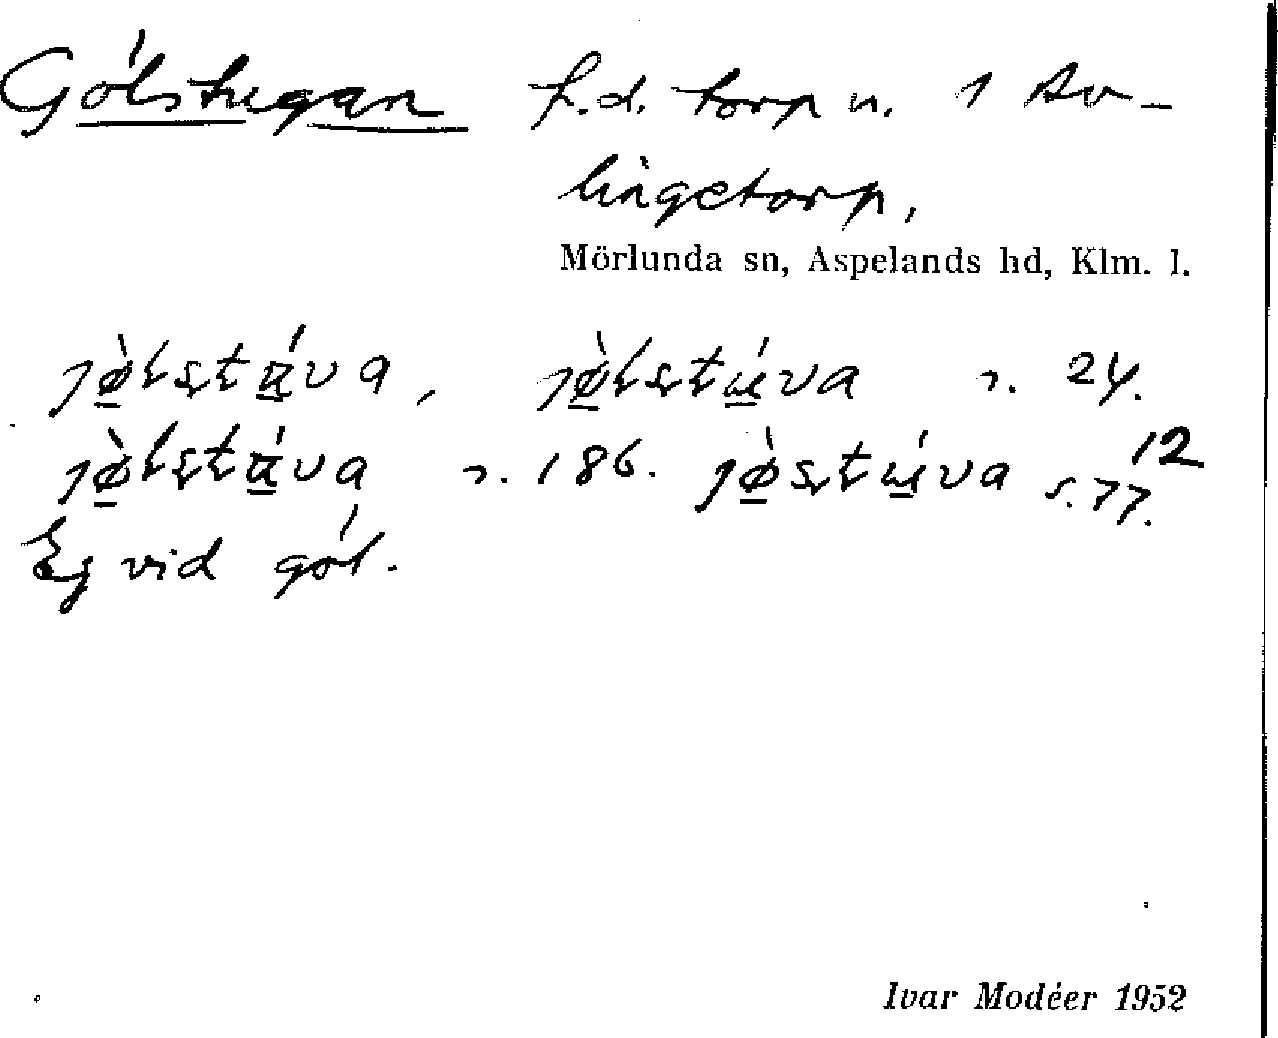 Gölstugan f.d. torp u. 1 Av-
lingetorp,
Mörlunda sn, Aspelands hd, Klm. l.
jø̀lstúva, jø̀lstúva s. 24.
jø̀lstúva s. 186. jø̀stúva s. 77. 12
Eg vid göl.
Ivar Modéer 1952